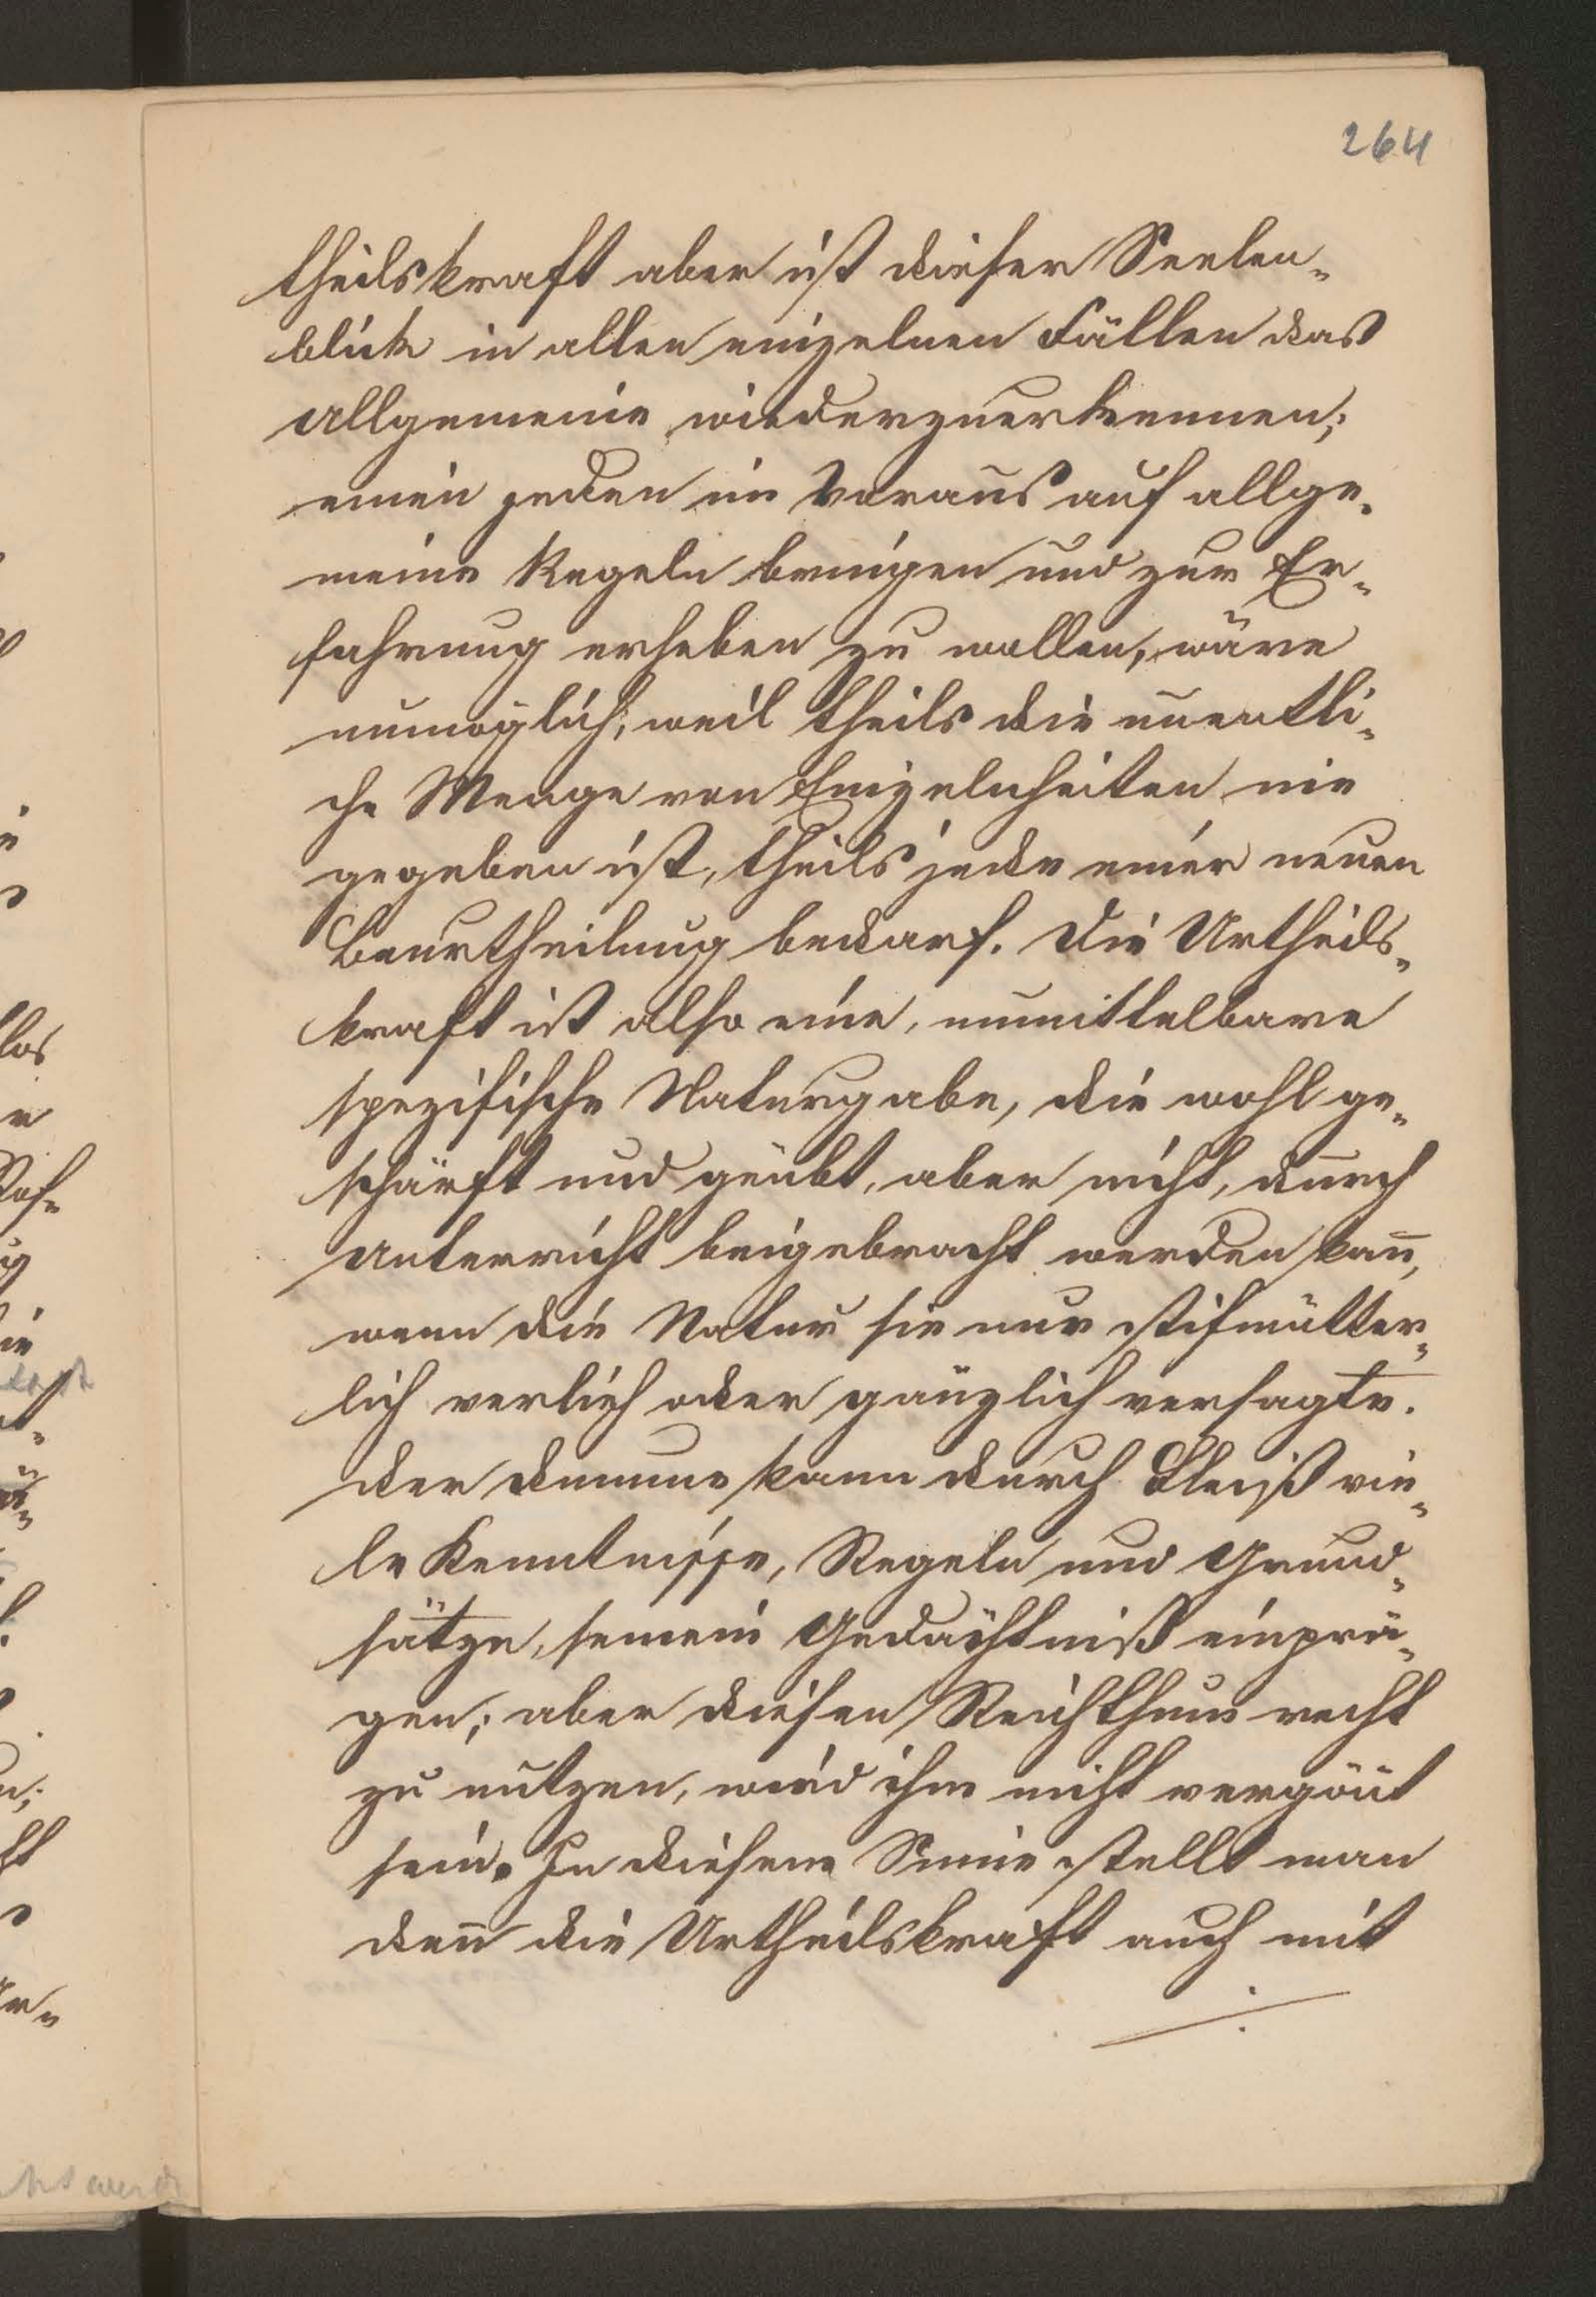 264
theilskraft aber ist dieser Seelen-
blick in allen einzelnen Fällen das
Allgemeine wiederzuerkennen;
einen jeden im Voraus auf allge-
meine Regeln bringen und zur Er-
fahrung erheben zu wollen, wäre
unmöglich, weil theils die unentli-
che Menge von Einzelnheiten nie
gegeben ist, theils jede einer neuen
Beurtheilung bedarf. Die Urtheils-
kraft ist also eine, unmittelbare
spezifische Naturgabe, die wohl ge-
schärft und geübt, aber nicht, durch
Unterricht beigebracht werden kan̄,
wenn die Natur sie nur stifmütter-
lich verlieh oder gänzlich versagte.
der dumme kann durch Fleiß vie-
le Kenntnisse, Regeln und Grund-
sätze, seinem Gedächtniß einprä-
gen; aber diesen Reichthum recht
zu nutzen, wird ihm nicht vergön̄t
sein. In diesem Sinne stellt man
den̄ die Urtheilskraft auch mit